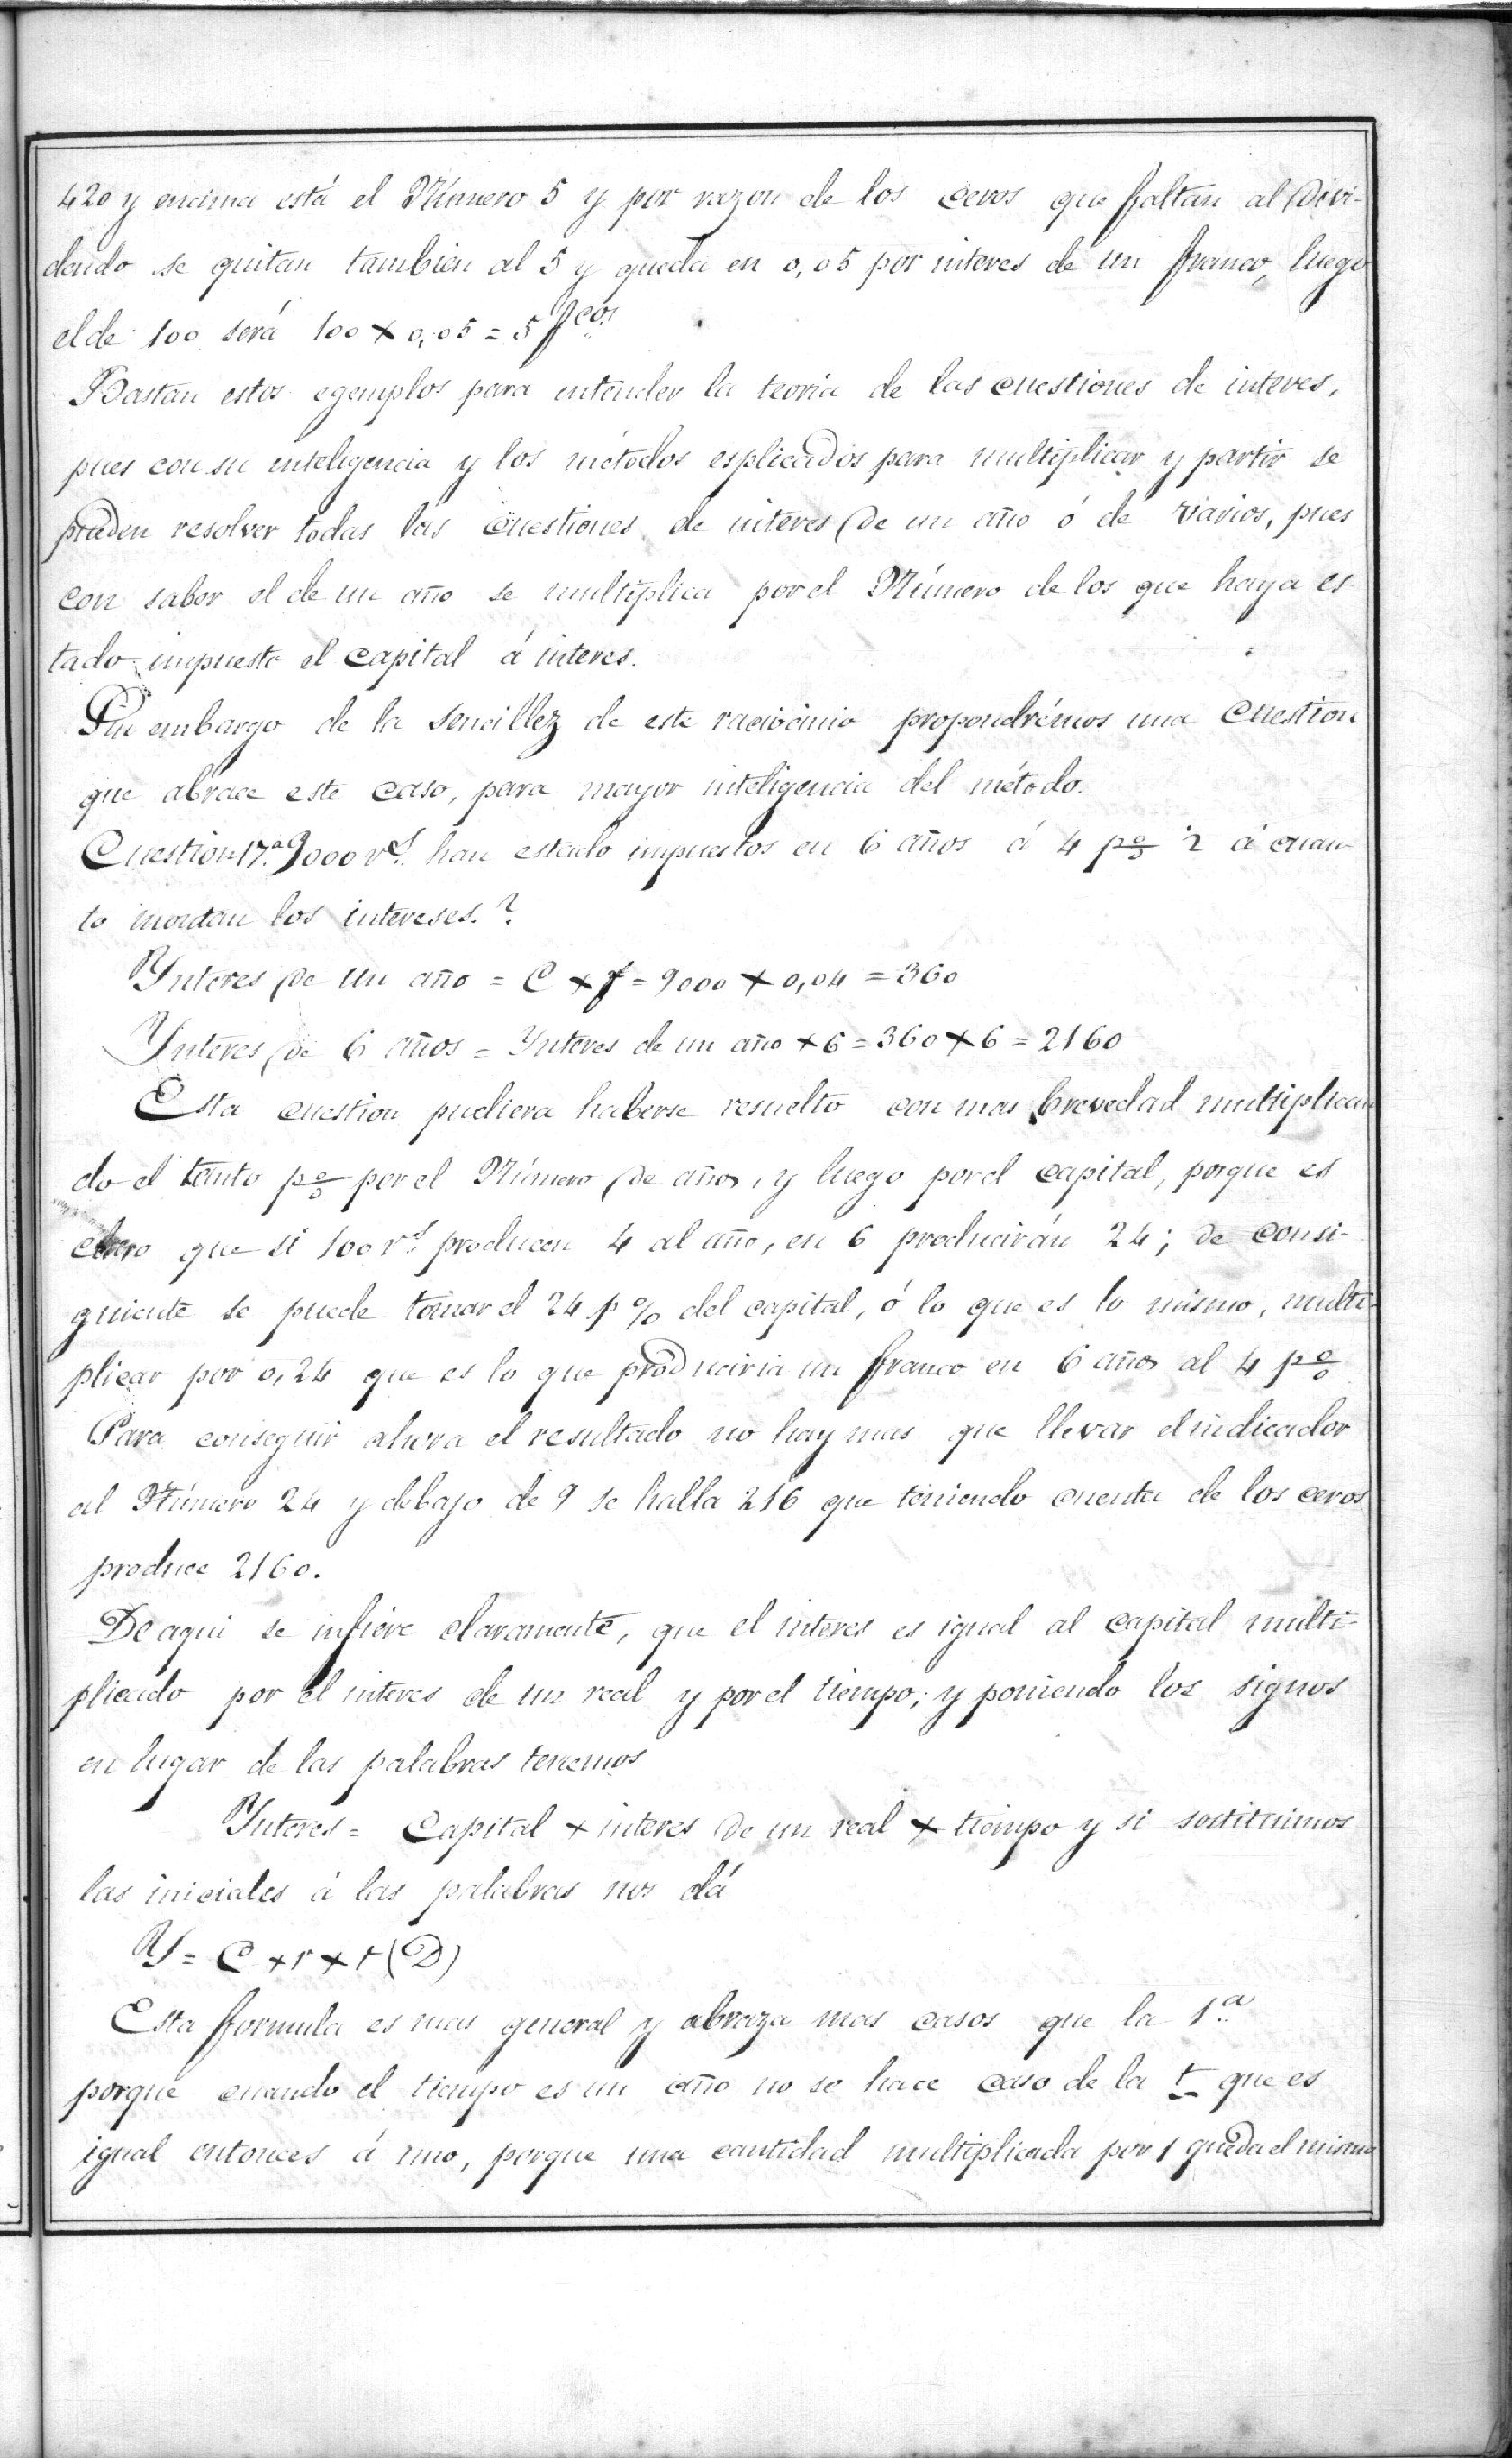 420 y encima está el Número 5 y por razon de los ceros que faltan al Divi-
dendo se quitan tambien al 5 y queda en 0,05 por interes de un franco, luego
el de 100 será 100 × 0,05 = 5 f.cos
Bastan estos egemplos para entender la teoria de las cuestiones de interes,
pues con su inteligencia y los métodos esplicados para multiplicar y partir se
pueden resolver todas las cuestiones de interes de un año ó de varios, pues
con saber el de un año se multiplica por el Número de los que haya es-
tado impuesto el capital á interes.
Sin embargo de la sencillez de este raciocinio propondrémos una cuestion
que abrace este caso, para mayor inteligencia del método.
Cuestion 17.a 9000 r.s han estado impuestos en 6 años á 4 p% ¿ á cuan-
to montan los intereses.?
Ynteres de un año = C × r = 9000 × 0,04 = 360
Ynteres de 6 años = Ynteres de un año × 6 = 360 × 6 = 2160
Esta cuestion pudiera haberse resuelto con mas brevedad multiplican
do el tanto p% por el Número de años, y luego por el capital, porque es
claro que si 100 r.s producen 4 al año, en 6 producirán 24; de consi-
guiente se puede tomar el 24 p% del capital, ó lo que es lo mismo, multi-
plicar por 0,24 que es lo que produciria un franco en 6 años al 4 p%
Para conseguir ahora el resultado no hay mas que llevar el indicador
al Número 24 y debajo de 9 se halla 216 que teniendo cuenta de los ceros
produce 2160.
De aqui se infiere claramente, que el interes es igual al capital multi-
plicado por el interes de un real y por el tiempo; y poniendo los signos
en lugar de las palabras tenemos
Ynteres = Capital × interes de un real × tiempo y si sostituimos
las iniciales á las palabras nos dá
Y = C × r × t (D)
Esta formula es mas general y abraza mas casos que la 1.a
porque cuando el tiempo es un año no se hace caso de la t que es
igual entonces á uno, porque una cantidad multiplicada por 1 queda el mismo